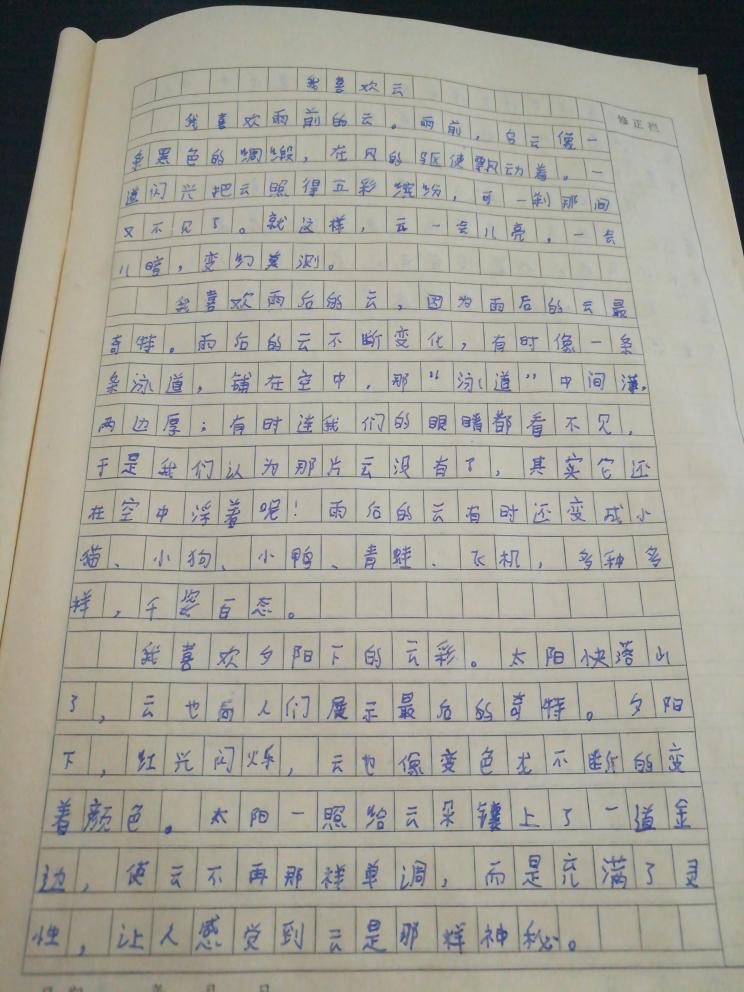 我喜欢云
修正栏
我喜欢雨前的云。雨前，乌云像一
条黑色的绸缎，在风的驱使飘动着。一
道闪光把云照得五彩缤纷，可一刹那间
又不见了。就这样，云一会儿亮，一会
儿暗，变幻莫测。
我喜欢雨后的云，因为雨后的云最
奇特。雨后的云不断变化，有时像一条
条泳道，铺在空中，那“泳道”中间薄，
两边厚；有时连我们的眼睛都看不见，
于是我们认为那片云没有了，其实它还
在空中浮着呢！雨后的云有时还变成小
猫、小狗、小鸭、青蛙、飞机，多种多
样，千姿百态。
我喜欢夕阳下的云彩。太阳快落山
了，云也向人们展示最后的奇特。夕阳
下，红光闪烁，云也像变色龙不断的变
着颜色。太阳一照给云朵镶上了一道金
边，使云不再那样单调，而是充满了灵
性，让人感觉到云是那样神秘。